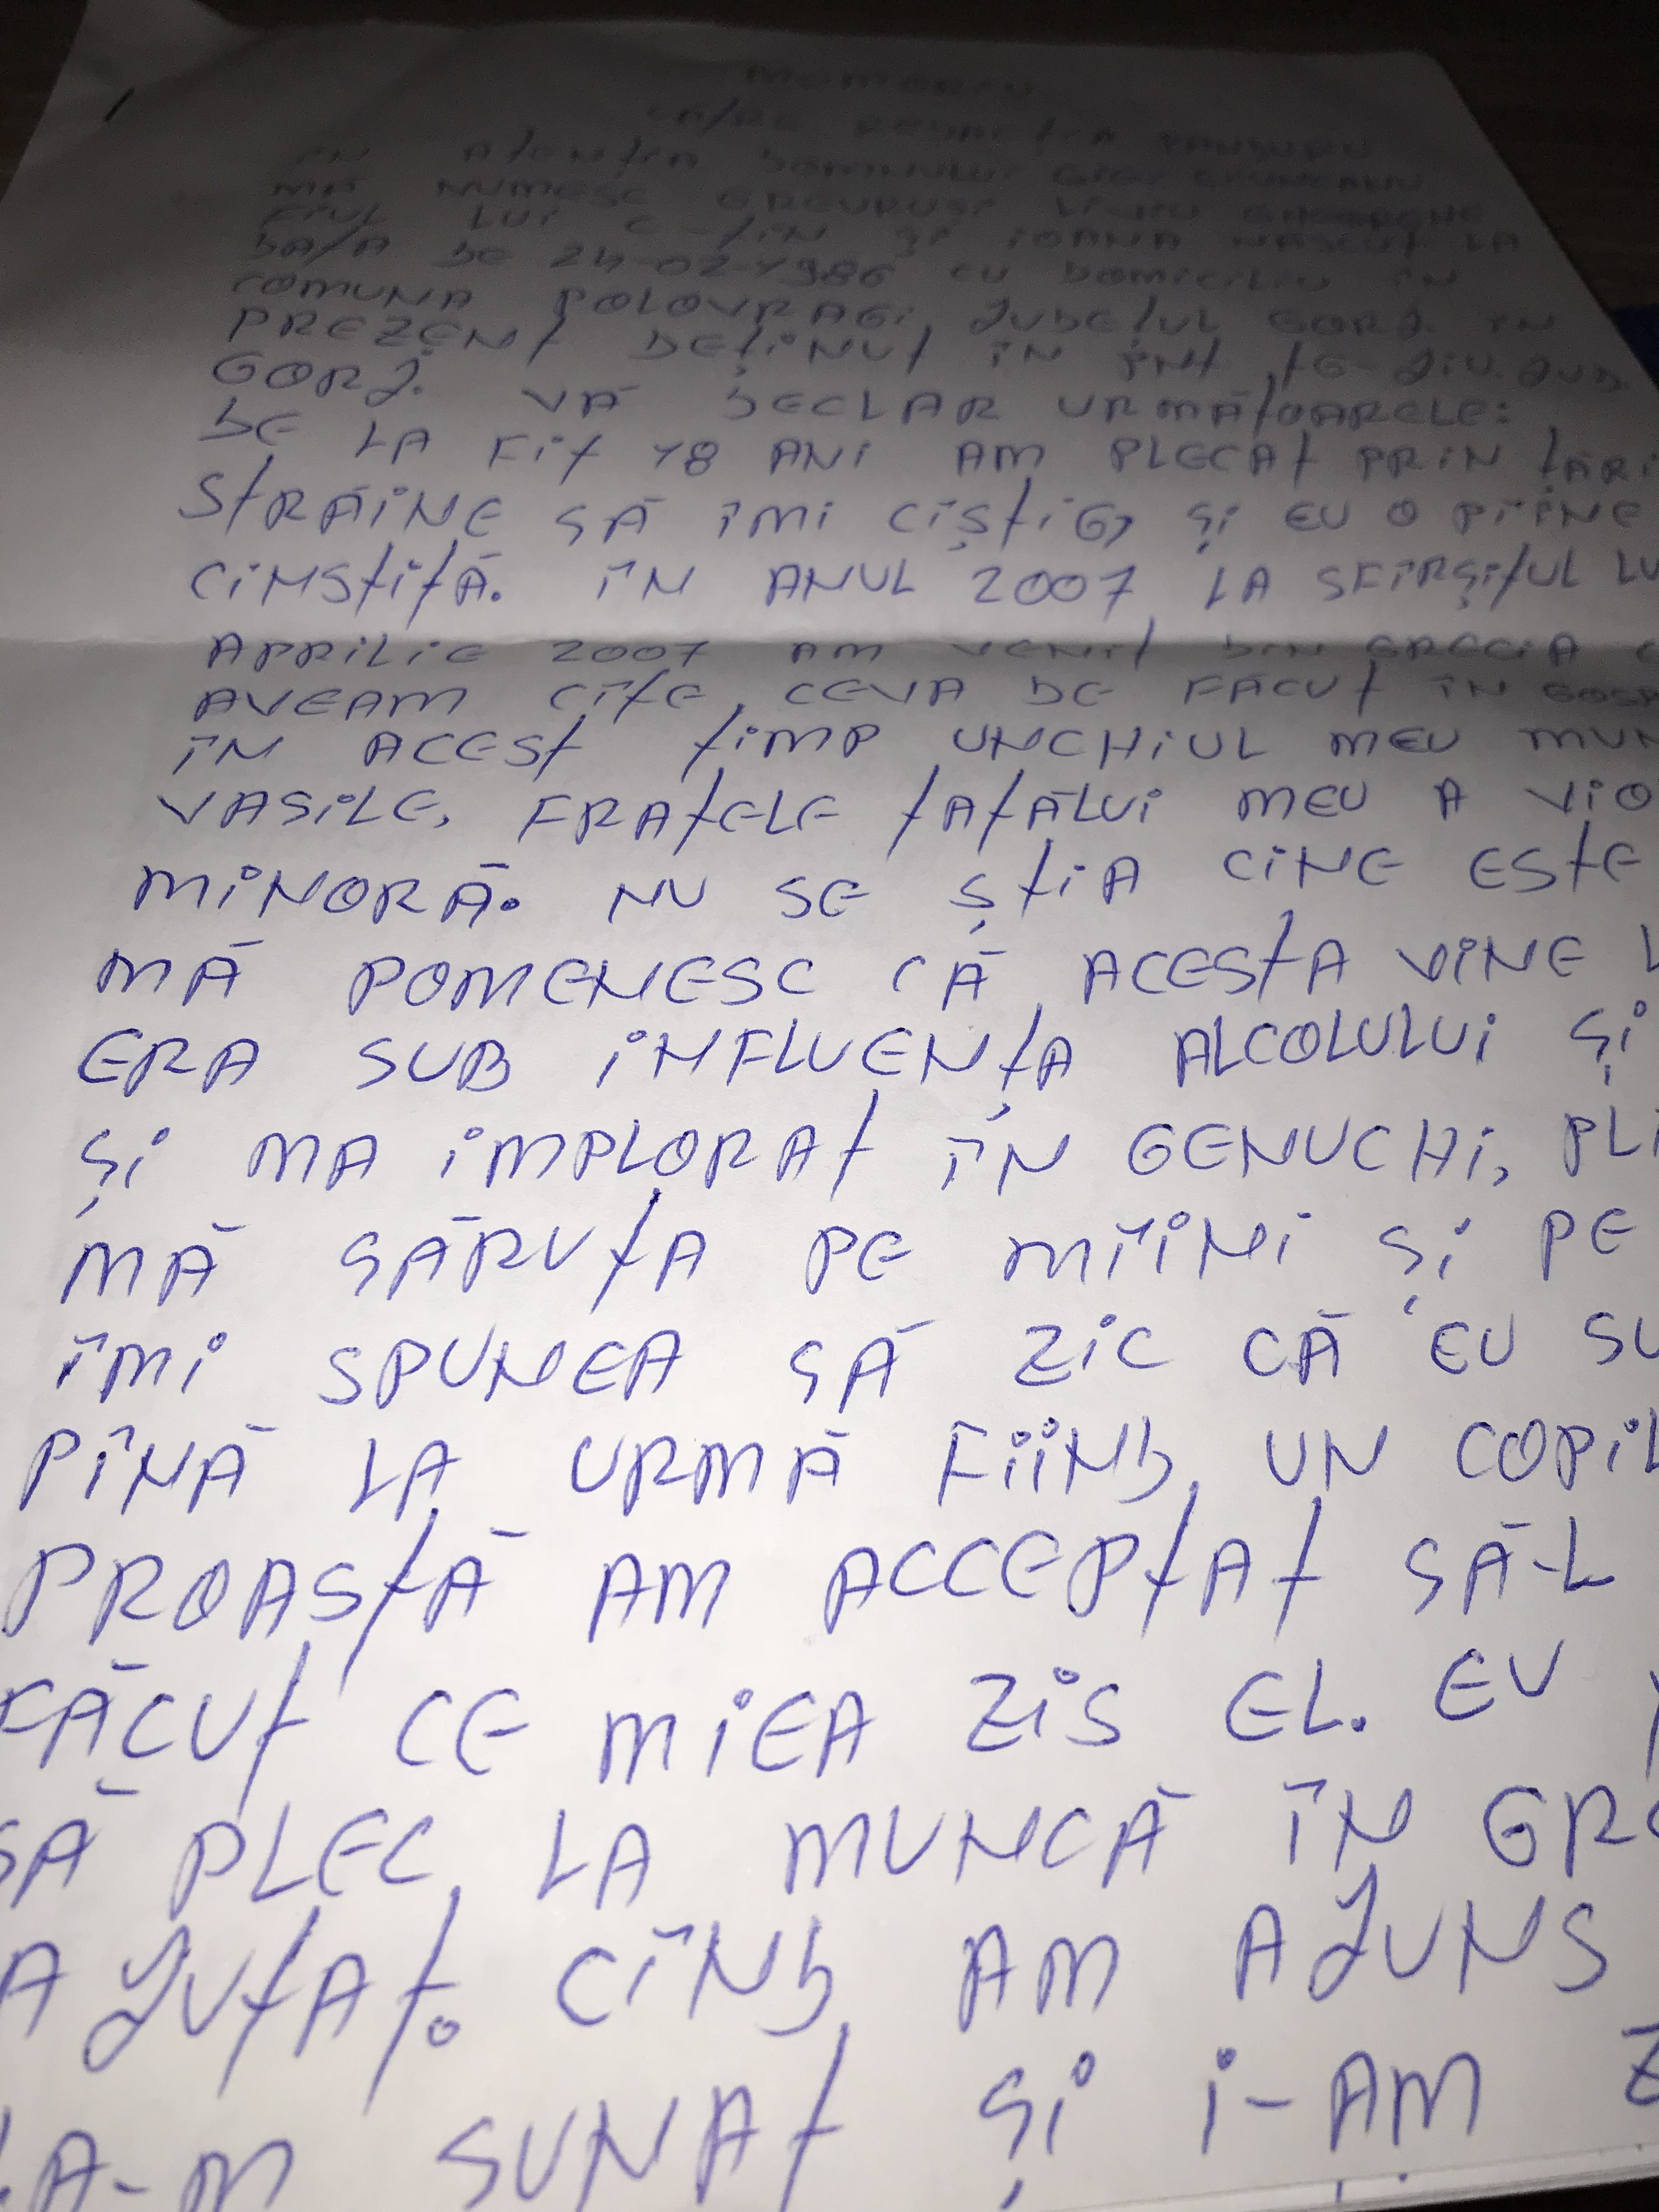 MEMORIU
CĂTRE REDACȚIA PANDURU
ÎN ATENȚIA DOMNULUI GIGI
MĂ NUMESC GHEORGHE
FIUL LUI C-TIN ȘI IOANA NĂSCUT LA
DATA DE 24-02-1986 CU DOMICILIU ÎN
COMUNA POLOVRAGI, JUDEȚUL GORJ. ÎN
PREZENT DEȚINUT ÎN PNT TG-JIU. JUD.
GORJ. VĂ DECLAR URMĂTOARELE:
DE LA FIT 18 ANI AM PLECAT PRIN ȚĂRI
STRĂINE SĂ ÎMI CIȘTIG, ȘI EU O PIINE
CINSTITĂ. ÎN ANUL 2007, LA SFÎRȘITUL LU
APRILIE 2007 AM VENIT DIN GRECIA
AVEAM CÎTE CEVA DE FĂCUT ÎN GOSP
ÎN ACEST TIMP UNCHIUL MEU MUN
VASILE, FRATELE TATĂLUI MEU A VIO
MINORĂ. NU SE ȘTIA CINE ESTE
MĂ POMENESC CĂ ACESTA VINE L
ERA SUB INFLUENȚA ALCOLULUI ȘI
ȘI MA IMPLORAT ÎN GENUCHI, PLI
MĂ SĂRUTA PE MÎINI ȘI PE
ÎMI SPUNEA SĂ ZIC CĂ EU SU
PÎNĂ LA URMĂ FIIND UN COPIL
PROASTĂ AM ACCEPTAT SĂ-L
FĂCUT CE MIEA ZIS EL. EU
SĂ PLEC LA MUNCĂ ÎN GRE
AJUTAT. CÎND AM AJUNS
L-A-M SUNAT ȘI I-AM Z